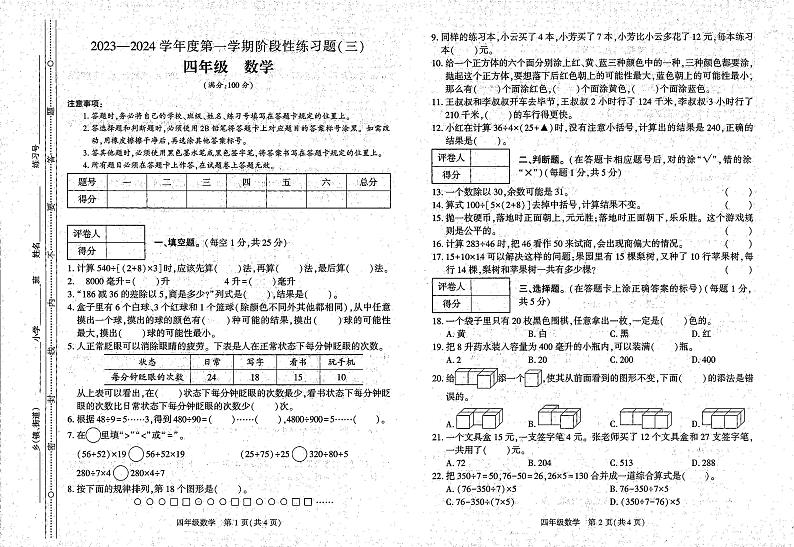 2023—2024 学年度第一学期阶段性练习题(三)
四年级 数学
(满分:100 分)
注意事项:
1. 答题时,务必将自己的学校、班级、姓名、练习号填写在答题卡规定的位置上。
2. 答选择题和判断题时,必须使用 2B 铅笔将答题卡上对应题目的答案标号涂黑。如需改
动,用橡皮擦擦干净后,再选涂其他答案标号。
3. 答其他题时,必须使用黑色墨水笔或黑色签字笔,将答案书写在答题卡规定的位置上。
4. 所有题目必须在答题卡上作答,在试题卷上答题无效。
题号 一 二 三 四 五 六 总分
得分
评卷人
得分
一、填空题。(每空 1 分,共 25 分)
1. 计算 540÷[(2+8)×3]时,应该先算( )法,再算( )法,最后算( )法。
2. 8000 毫升=( )升 4 升=( )毫升
3. “186 减 36 的差除以 5,商是多少?”列式是( ),结果是( )。
4. 盒子里有 6 个白球、3 个红球和 1 个篮球(除颜色不同外其他都相同),从中任意
摸出一个球,摸出的球的颜色有( )种可能的结果,摸出( )球的可能性
最大,摸出( )球的可能性最小。
5. 人正常眨眼可以消除眼睛的疲劳。下表是人在正常状态下每分钟眨眼的次数。
状态 日常 写字 看书 玩手机
每分钟眨眼的次数 24 18 15 10
从上表可以看出,在( )状态下每分钟眨眼的次数最少,看书状态下每分钟眨
眼的次数比日常状态下每分钟眨眼的次数少( )次。
6. 根据 48÷9=5……3,得到 480÷90=( )……( ),4800÷900=5……( )。
7. 在○里填“>”“<”或“=”。
(56+52)×19○56+52×19 (25+75)÷25○320÷80+5
280÷7×4○280×4÷7
8. 按下面的规律排列,第 18 个图形是( )。
○○□□□○○□□□○○□□□……
四年级数学 第 1 页(共 4 页)
9. 同样的练习本,小云买了 4 本,小芳买了 7 本,小芳比小云多花了 12 元,每本练习
本( )元。
10. 给一个正方体的六个面分别涂上红、黄、蓝三种颜色中的一种,三种颜色都要涂,
抛起这个正方体,要想落下后红色朝上的可能性最大,蓝色朝上的可能性最小,
那么有( )个面涂红色,( )个面涂黄色,( )个面涂蓝色。
11. 王叔叔和李叔叔开车去毕节,王叔叔 2 小时行了 124 千米,李叔叔 3 小时行了
210 千米,( )的车行得更快。
12. 小红在计算 36÷4×(25+▲)时,没有注意小括号,计算出的结果是 240,正确的
结果是( )。
评卷人
得分
二、判断题。(在答题卡相应题号后,对的涂“√”,错的涂
“×”)(每题 1 分,共 5 分)
13. 一个数除以 30,余数可能是 31。 ( )
14. 算式 100÷[5×(2+8)]去掉中括号,计算结果不变。 ( )
15. 抛一枚硬币,落地时正面朝上,元元胜;落地时正面朝下,乐乐胜。这个游戏规
则是公平的。 ( )
16. 计算 283÷46 时,把 46 看作 50 来试商,会出现商偏大的情况。 ( )
17. 15+10×14 可以解决这样的问题:果园里有 15 棵梨树,又种了 10 行苹果树,每
行 14 棵,梨树和苹果树一共有多少棵? ( )
评卷人
得分
三、选择题。(在答题卡上涂正确答案的标号)(每题 1 分,
共 5 分)
18. 一个袋子里只有 20 枚黑色围棋,任意拿出一枚,一定是( )色的。
A. 黄 B. 白 C. 黑 D. 红
19. 把 8 升药水装入容量为 400 毫升的小瓶内,可以装满( )瓶。
A. 2 B. 20 C. 200 D. 400
20. 给 添一个 ,使其从前面看到的图形不变,下面( )的添法是错
误的。
A. B. C. D.
21. 一个文具盒 15 元,一支签字笔 4 元。张老师买了 12 个文具盒和 27 支签字笔,
一共用了( )元。
A. 72 B. 204 C. 513 D. 288
22. 把 350÷7=50,76-50=26,26×5=130 合并成一道综合算式是( )。
A. (76-350÷7)×5 B. 76-350÷7×5
C. 76-350÷(7×5) D. (350÷7-76)×5
四年级数学 第 2 页(共 4 页)
乡(镇、街道)
小学
班
姓名
练习号
密 封 线 内 不 要 答 题